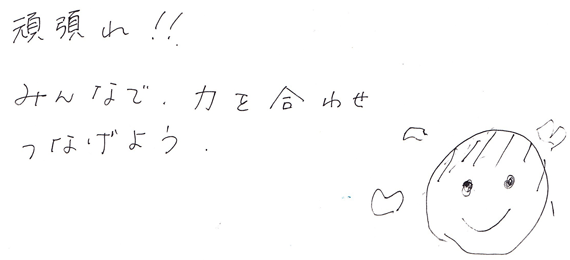 頑張れ!!
みんなで.力を合わせ
つなげよう.